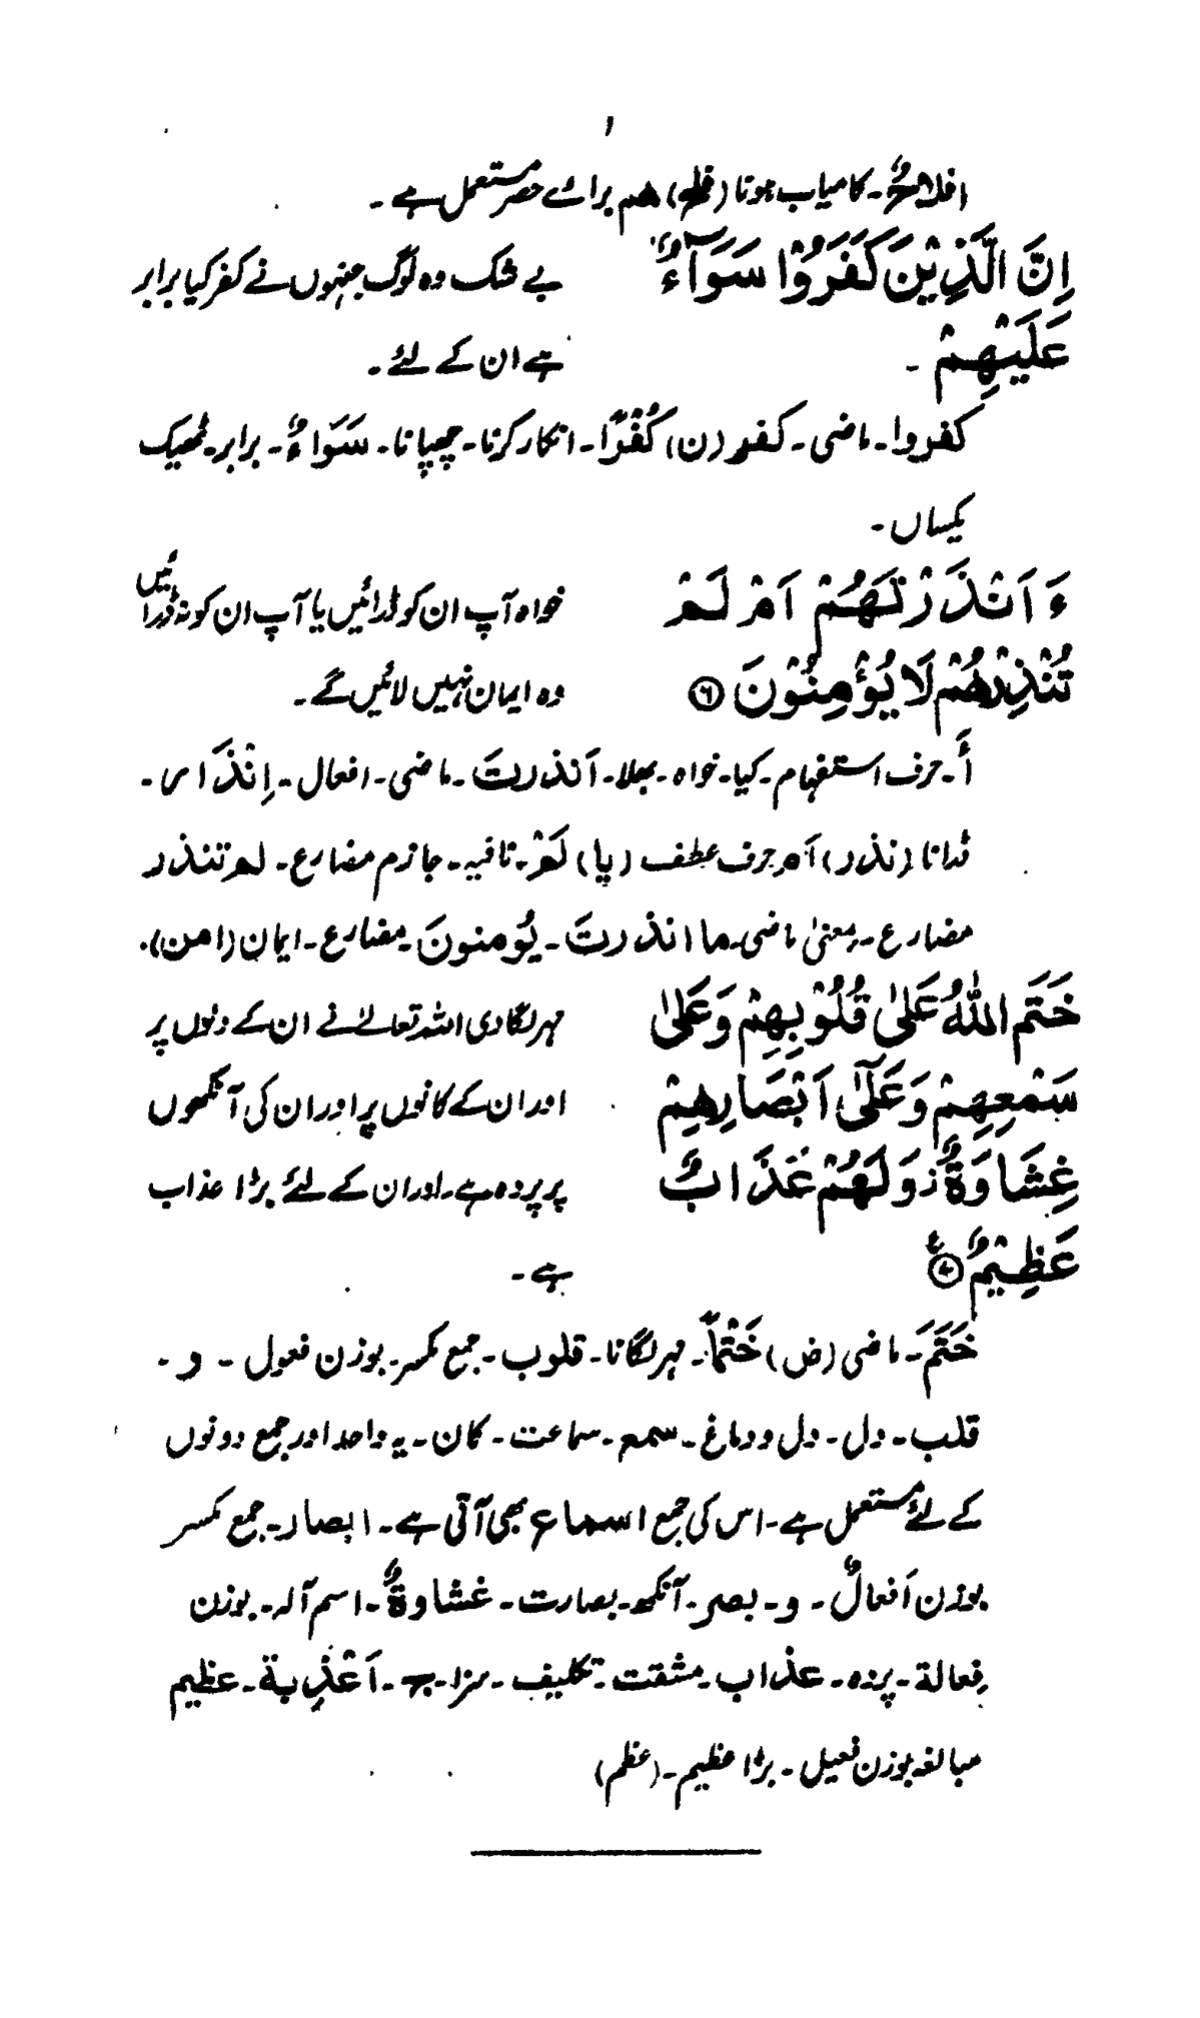 افلاحٌ۔ کامیاب ہونا (فلح) هم برائے حصر مستعمل ہے۔
اِنَّ الَّذِیْنَ کَفَرُوْا سَوَآءٌ بے شک وہ لوگ جنہوں نے کفر کیا برابر
عَلَیْهِمْ۔ ہے ان کے لئے۔
کفروا۔ ماضی۔ کفر (ن) کُفْرًا۔ انکار کرنا۔ چھپانا۔ سَوَاءٌ۔ برابر۔ ٹھیک
یکساں۔
ءَ اَنْذَرْتَهُمْ اَمْ لَمْ خواہ آپ ان کو ڈرائیں یا آپ ان کو نہ ڈرائیں
تُنْذِرْهُمْ لَا یُؤْمِنُوْنَ ۶ وہ ایمان نہیں لائیں گے۔
أَ۔ حرف استفہام۔ کیا۔ خواہ۔ بھلا۔ اَنذرتَ۔ ماضی۔ افعال۔ اِنْذَار۔
ڈرانا (نذر) اَم حرف عطف (یا) لَمْ۔ نافیہ۔ جازم مضارع۔ لم تنذر
مضارع۔ بمعنیٰ ماضی۔ ما انذرتَ۔ یُومنونَ۔ مضارع۔ ایمان (امن)۔
خَتَمَ اللّٰهُ عَلٰی قُلُوْبِهِمْ وَعَلٰی مہر لگا دی اللہ تعالےٰ نے ان کے دلوں پر
سَمْعِهِمْ وَعَلٰٓی اَبْصَارِهِمْ اور ان کے کانوں پر اور ان کی آنکھوں
غِشَاوَةٌ ز وَلَهُمْ عَذَابٌ پر پردہ ہے۔ اور ان کے لئے بڑا عذاب
عَظِیْمٌ ۷ ع ہے۔
خَتَمَ۔ ماضی (ض) خَتْمًا۔ مہر لگانا۔ قلوب۔ جمع مکسر۔ بوزن فعول۔ و۔
قلب۔ دل۔ دل و دماغ۔ سمع۔ سماعت۔ کان۔ یہ واحد اور جمع دونوں
کے لئے مستعمل ہے۔ اس کی جمع اسماع بھی آتی ہے۔ ابصار۔ جمع مکسر
بوزن اَفعالٌ۔ و۔ بصر۔ آنکھ۔ بصارت۔ غشاوةٌ۔ اسم آلہ۔ بوزن
فِعالة۔ پردہ۔ عذاب۔ مشقت۔ تکلیف۔ سزا۔ ج۔ اَعْذِبة۔ عظیم
مبالغہ بوزن فعیل۔ بڑا عظیم۔ (عظم)